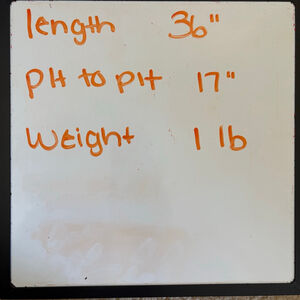 length 36"
pit to pit 17"
weight 1 lb